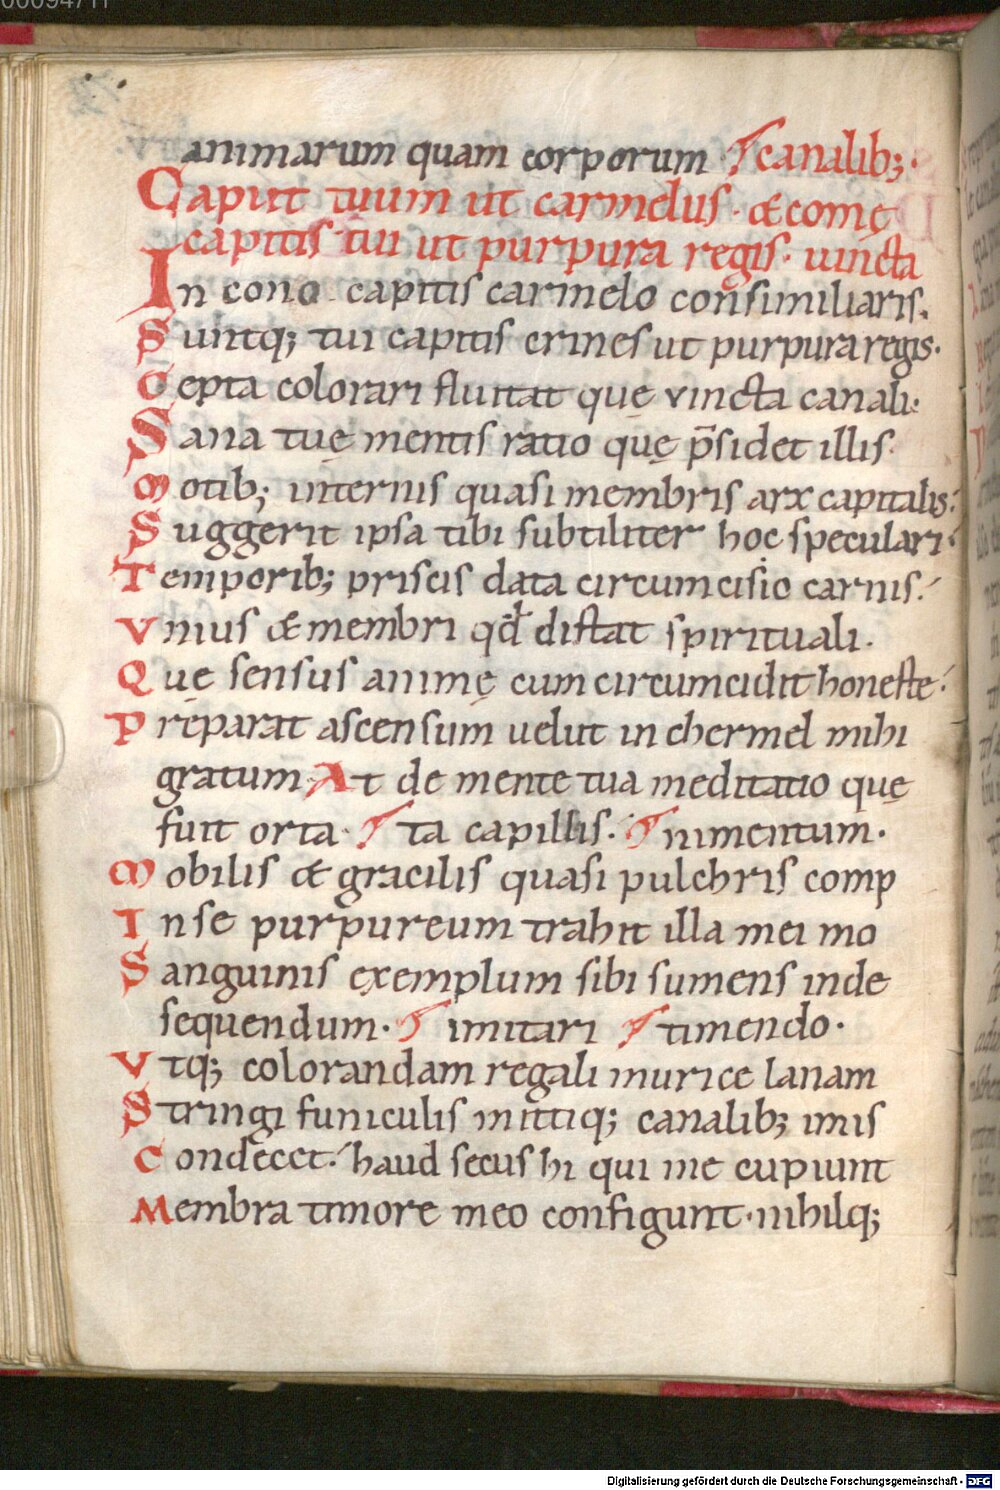 00094711
animarum quam corporum · canalib;·
Caput tuum ut carmelus· & comę
capitis tui ut purpura regis· uincta
In cono capitis carmelo consimiliaris.
Suntq; tui capitis crines ut purpura regis·
Cepta colorari fluitat que vincta canali·
Sana tuę mentis ratio quę p̄sidet illis·
Motib; internis quasi membris arx capitalis·
Suggerit ipsa tibi subtiliter hoc speculari·
Temporib; priscis data circumcisio carnis·
Vnius & membri qđ distat spirituali·
Quę sensus animę cum circumcidit honeste·
Pręparat ascensum velut in chermel mihi
gratum· At de mente tua meditatio quę
fuit orta· ta capillis· nimentum·
Mobilis & gracilis quasi pulchris comp
In se purpureum trahit illa mei mo
Sanguinis exemplum sibi sumens inde
sequendum· imitari timendo·
Vtq; colorandam regali murice lanam
Stringi funiculis mittiq; canalib; imis
Condecet· haud secus hi qui me cupiunt
Membra timore meo configunt· nihilq;
Digitalisierung gefördert durch die Deutsche Forschungsgemeinschaft - DFG